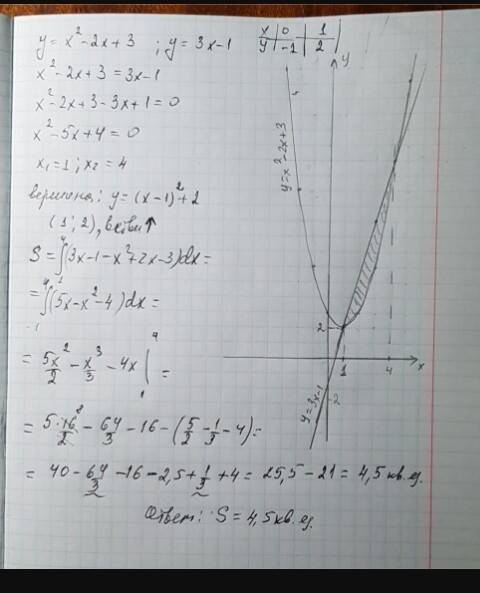 y = x² - 2x + 3 ; y = 3x - 1
x | 0 | 1
y | -1 | 2
x² - 2x + 3 = 3x - 1
x² - 2x + 3 - 3x + 1 = 0
x² - 5x + 4 = 0
x₁ = 1 ; x₂ = 4
вершина: y = (x - 1)² + 2
(1 ; 2), ветви ↑
S = ∫₁⁴ (3x - 1 - x² + 2x - 3) dx =
= ∫₁⁴ (5x - x² - 4) dx =
= 5x²/2 - x³/3 - 4x |₁⁴ =
= 5·16⁸/2 - 64/3 - 16 - (5/2 - 1/3 - 4) =
= 40 - 64/3 - 16 - 2,5 + 1/3 + 4 = 25,5 - 21 = 4,5 кв. ед.
Ответ: S = 4,5 кв. ед.
y
y = x² - 2x + 3
2
1
4
x
y = 3x - 1
-2